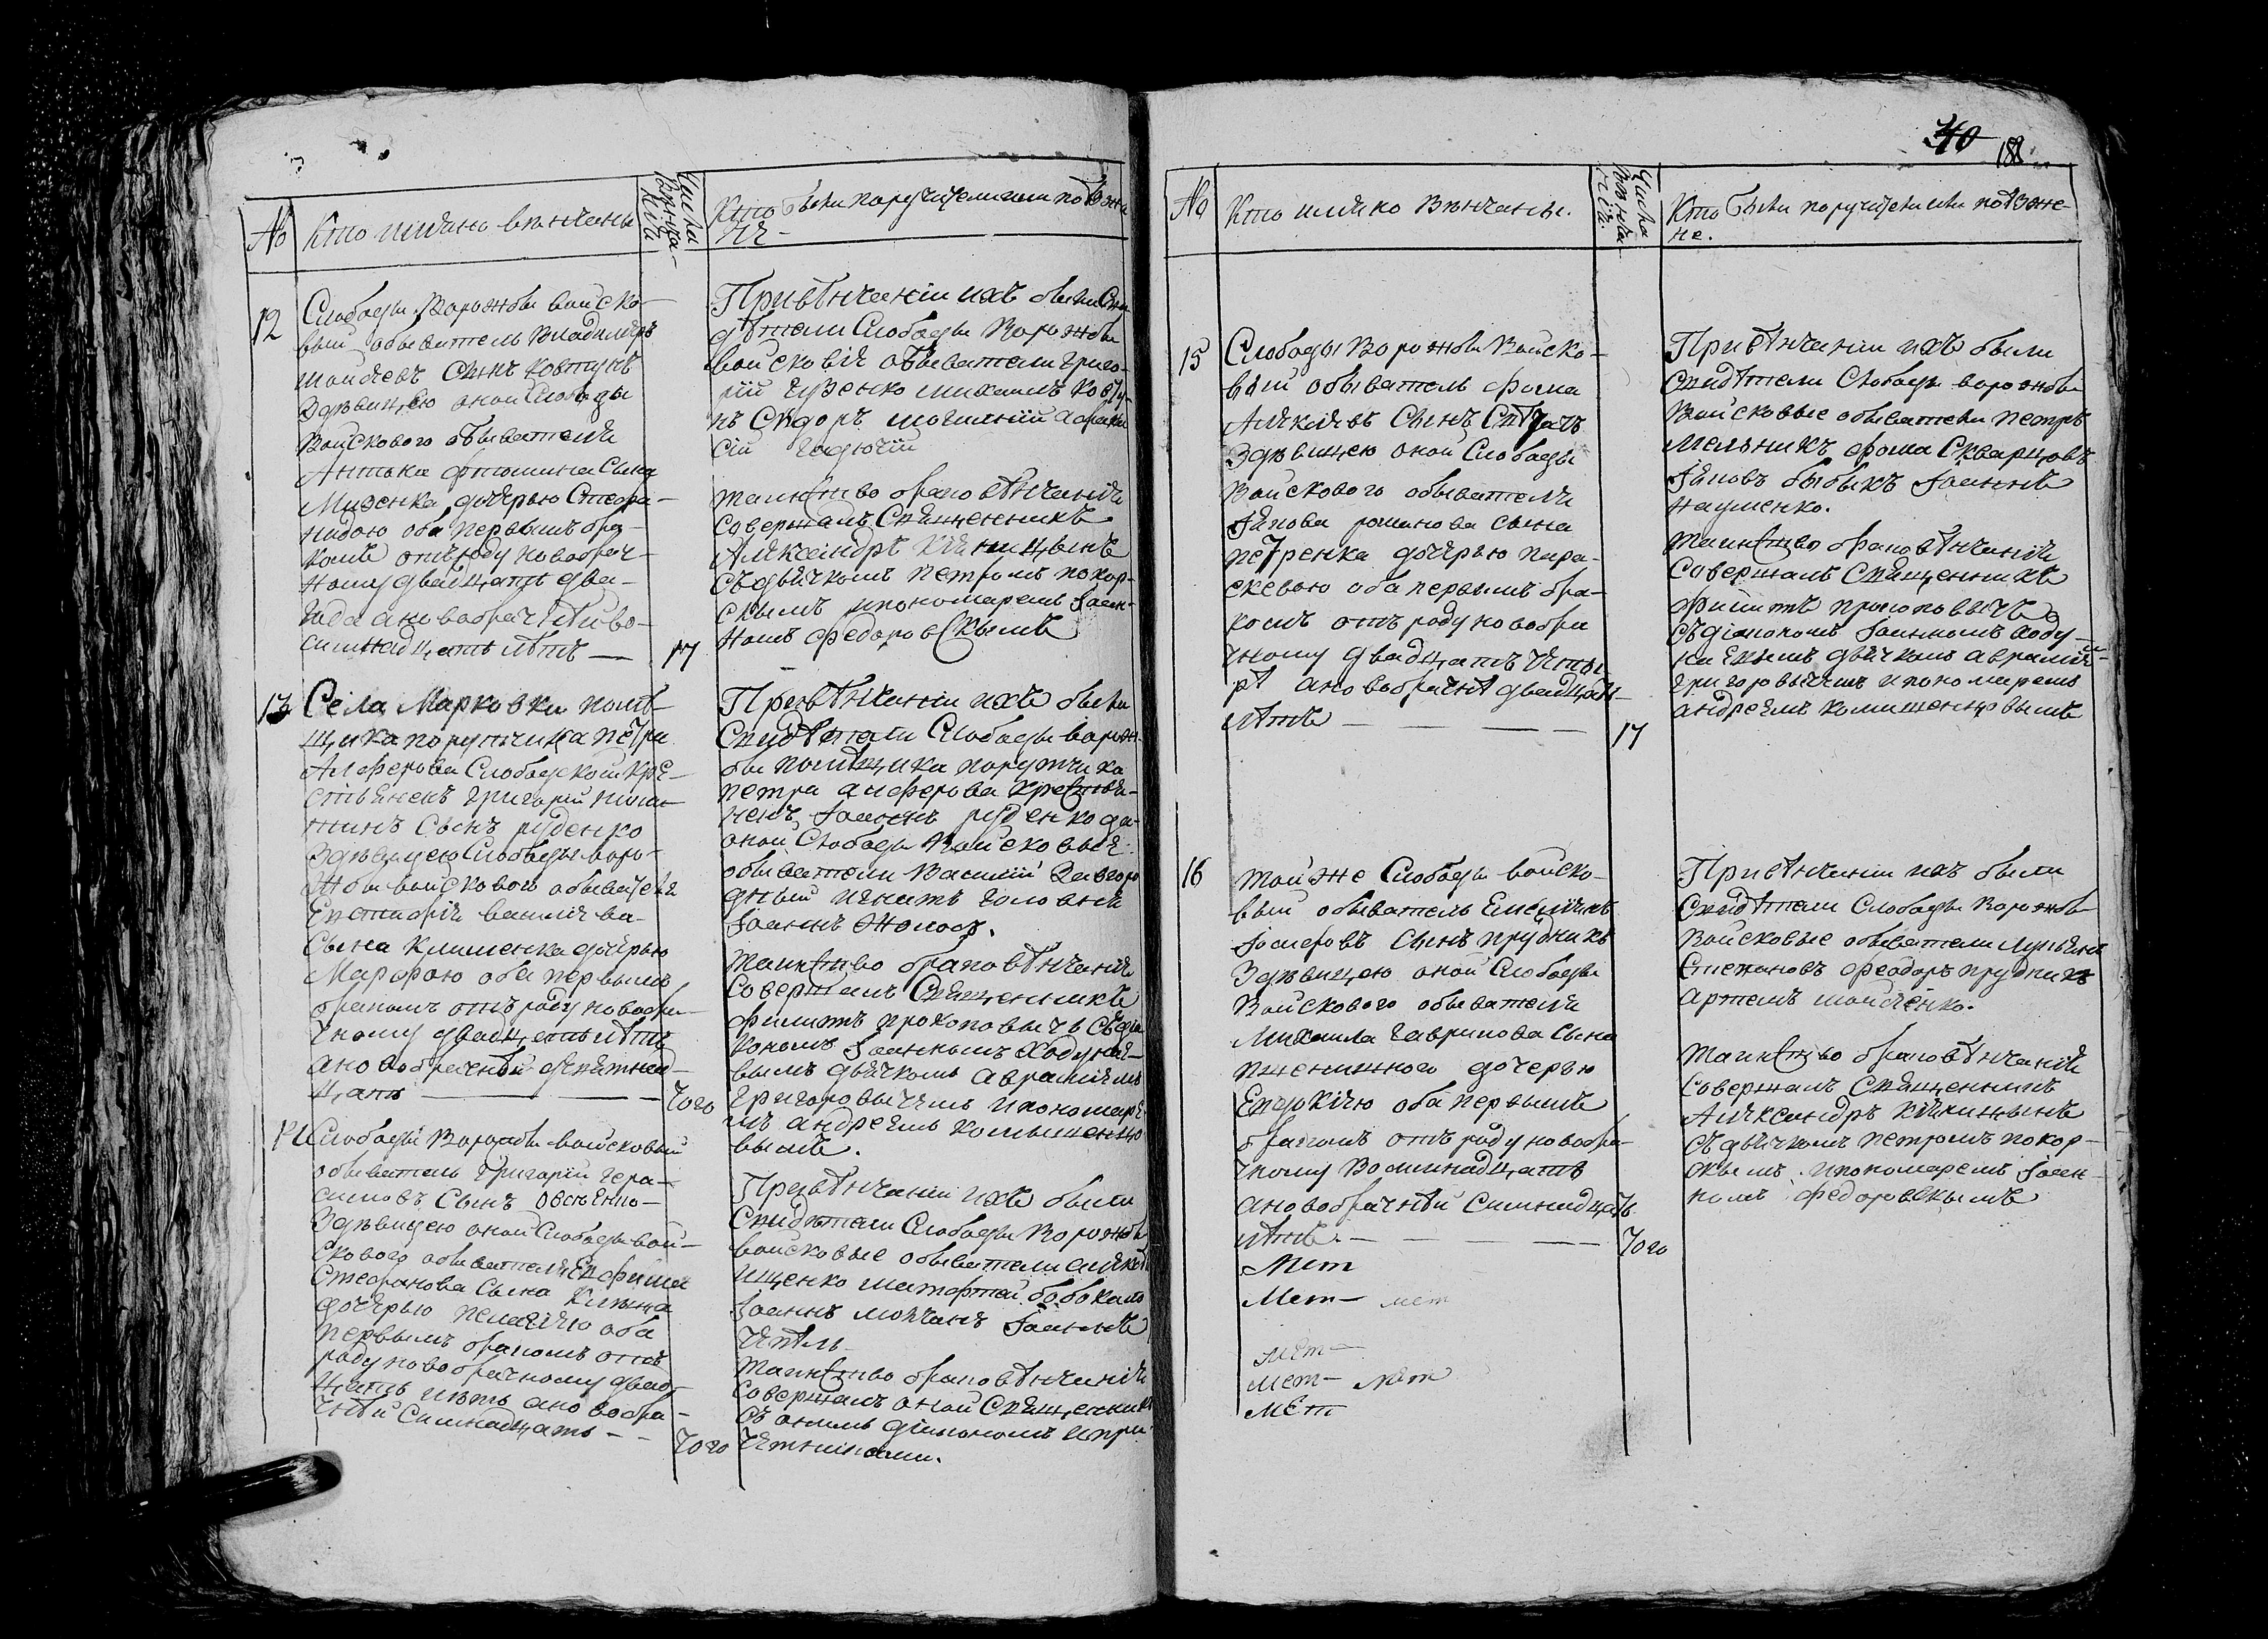 40
188
№
Кто имяно венчаны
Числа
венча-
нія
Кто были поручители или поезжа
не
12
Слободы Ворожбы войско-
вый обыватель Владимеръ
Моисѣевъ сынъ Ковтунъ
Здѣвицею оной Слободы
Войскового обывателя
Антона сына
дочерью Стефа-
нидою оба первымъ бра-
комъ отъ роду новобрач-
ному двадцать два
года а новобрачнѣй во-
симнадцать лѣтъ —
17
Привѣнчаніи ихъ были Сви
дѣтели Слободы Ворожбы
войсковіе обыватели Григо-
рій Михаилъ Ковту-
нъ Сидоръ Могилній Афана
сій
таинство браковѣнчанія
совершалъ Священникъ
Александръ
съдьячкомъ Петромъ Покор-
скымъ ипономаремъ Іоан-
номъ Федоровскымъ
13
Села Марковки помѣ-
щика порутчика Петра
Алферова Слободской кре-
стьяненъ Григорій
сынъ Руденко
Здѣвицею Слободы Воро-
жбы войскового обывателя
Евстафія ва-
сына Клименка дочерью
Марфою оба первымъ
бракомъ отъ роду новобра-
чному двадцать лѣтъ
ановобрачнѣй девятнад-
цать —
того
Привѣнчаніи ихъ были
Свидѣтели Слободы Ворож-
бы помѣщика порутчика
Петра Алферова крестья-
ненъ Іоаннъ Руденко да
оной Слободы Войсковые
обыватели Василій Загоро
дный Игнатъ Головня
Іоаннъ
таинство браковѣнчанія
Совершалъ Священникъ
Филипъ Прокоповычъ Съдіа
кономъ Іоанномъ Ходунае-
вымъ дьячкомъ Авраміемъ
Григоровычемъ ипономаре
мъ Андреемъ Комышенцо
вымъ.
14
Слободы Ворожбы войсковый
обыватель Григорій Гера-
симовъ сынъ Овсѣенко
Здѣвицею оной Слободы вой-
скового обывателя Ефима
Стефанова сына
дочерью Пелагіею оба
первымъ бракомъ отъ
роду новобрачному двад-
цать лѣтъ ановобра-
чнѣй симнадцать - -
того
Привѣнчаніи ихъ были
Свидѣтели Слободы Ворожбы
войсковые обыватели
Ищенко
Іоаннъ Молчанъ Іоаннъ
таинство браковѣнчанія
совершалъ оной Священникъ
съ онымъ діакономъ ипри-
четниками.
№
Кто имяно Венчаны.
Числа
венча-
нія.
Кто были поручители или поезже-
не.
15
Слободы Ворожбы Войско-
вый обыватель Фома
сынъ
Здѣвицею оной Слободы
Войскового обывателя
Іякова Романова сына
Петренка дочерью Пара-
скевою оба первымъ бра-
комъ отъ роду новобра
чному двадцать четы
рѣ ановобрачнѣ двадцать
лѣтъ —
17
Привѣнчаніи ихъ были
Свидѣтели Слободы Ворожбы
Войсковые обыватели Петръ
Мельникъ Фома Скварцовъ
Іяковъ Іоаннъ
Науменко.
таинство браковѣнчанія
Совершалъ Священникъ
Филипъ Прокоповычъ
съдіакономъ Іоанномъ Ходу-
наевымъ дьячкомъ Авраміем
Григоровычемъ ипономаремъ
Андреемъ Комишенцовымъ
16
той же Слободы войско-
вый обыватель Емелянъ
Іосифовъ сынъ Прудникъ
Здѣвицею оной Слободы
Войскового обывателя
Михаила Гаврилова сына
Пшеничного дочерью
Евдокіею оба первымъ
бракомъ отъ роду новобра-
чному Восимнадцать
ановобрачнѣй симнадцать
лѣтъ. —
того
Привѣнчаніи ихъ были
Свидѣтели Слободы Ворожбы
Войсковые обыватели Лукьянъ
Степановъ Феодоръ Прудникъ
Артемъ Мойсѣенко.
Таинство браковѣнчанія
Совершалъ Священникъ
Александръ
съдьячкомъ Петромъ Покор-
скымъ ипономаремъ Іоан-
номъ Федоровскымъ
Мет
Мет— мет
мет—
мет— мет
мет